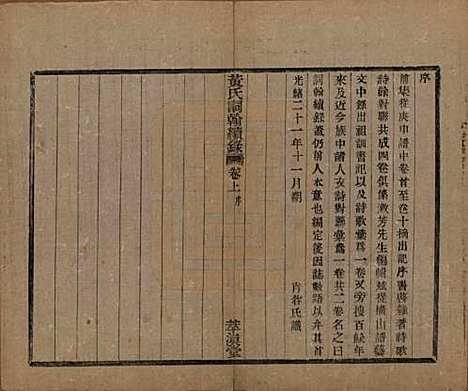 序
前集從庚申譜中卷首至卷十摘出記序書啓雜著詩歌
詩餘對聯共成四卷俱係漱芳先生編輯茲從橫山譜藝
文中錄出祖訓書記以及詩歌彙爲一卷又旁搜百餘年
來及近今族中諸人文詩對聯彙爲一卷共二卷名之曰
詞翰續錄蓋仍前人本意也編定後因誌數語以弁其首
光緒二十一年十一月朔
肯谷氏識
黃氏詞翰續錄
卷上序
萃渙堂